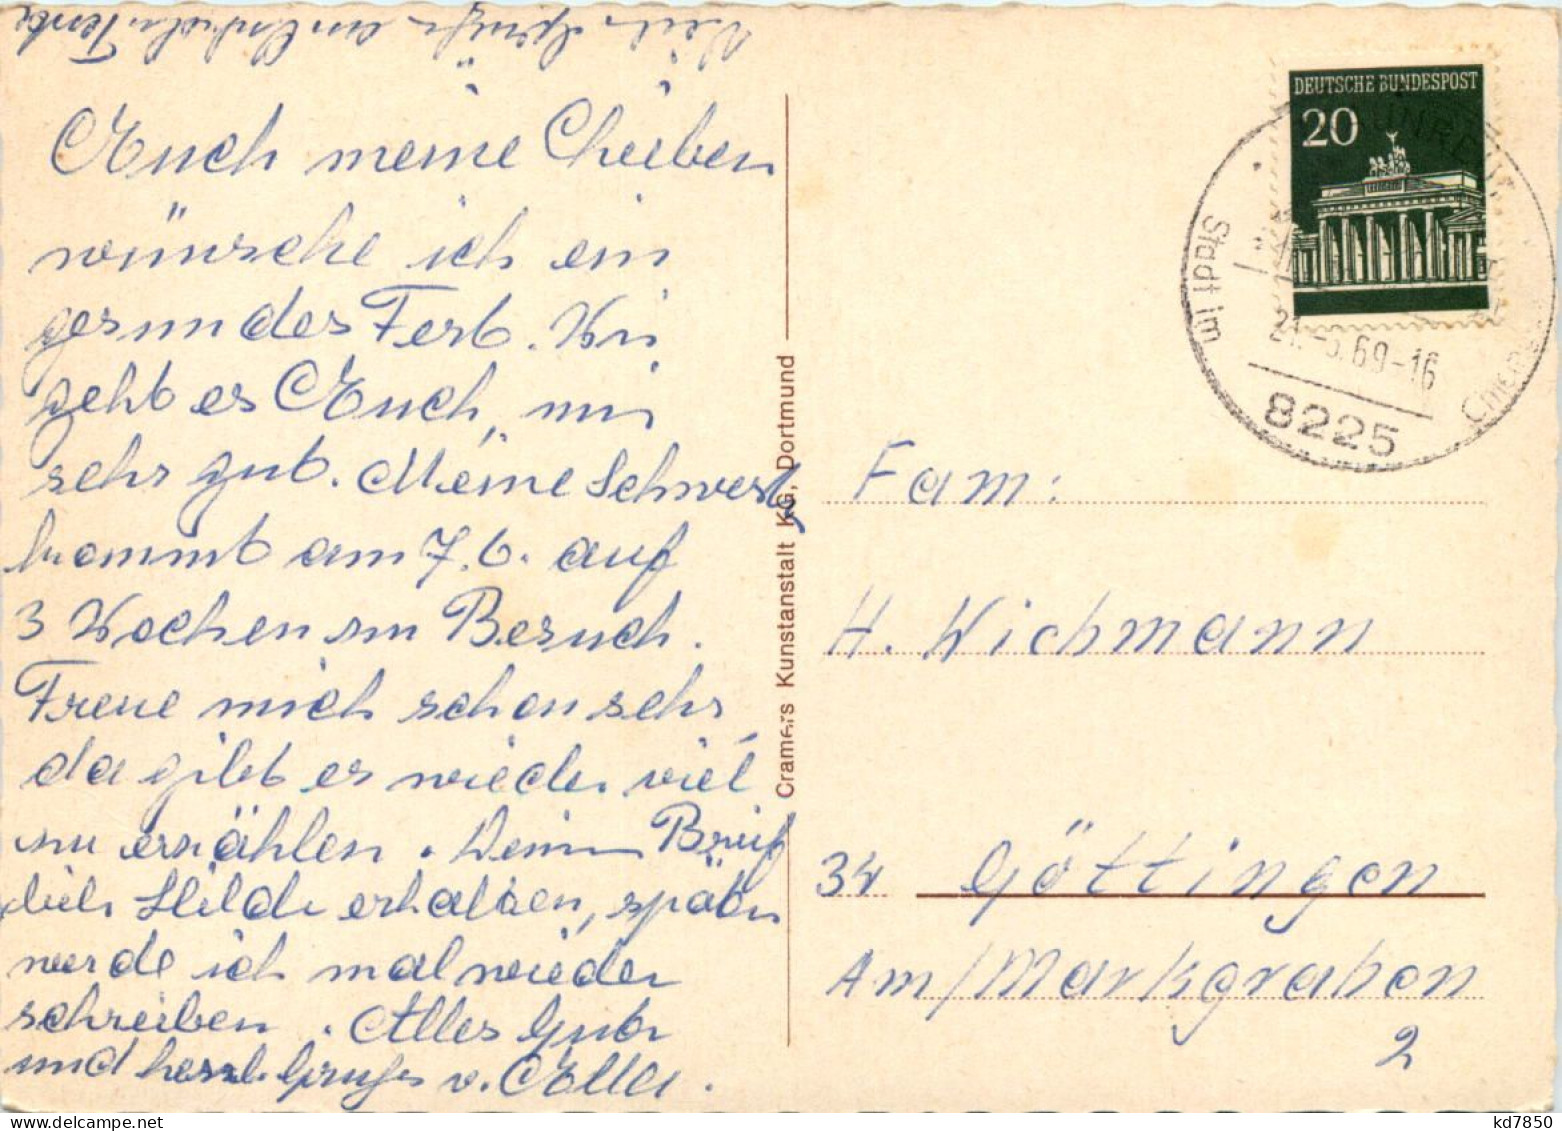 Viele Grüße an
Euch meine Lieben
wünsche ich ein
gesundes Fest. Wie
geht es Euch, mir
sehr gut. Meine Schwest.
kommt am 7.6. auf
3 Wochen zum Besuch.
Freue mich schon sehr,
da gibt es wieder viel
zu erzählen. Deinen Brief
liebe Hilde erhalten, später
werde ich mal wieder
schreiben. Alles Gute
und herzl. Grüße v. Ella.
Cramers Kunstanstalt KG, Dortmund
DEUTSCHE BUNDESPOST
20
Stadt im
21.-5.69-16
8225
Fam:
H. Wichmann
34 Göttingen
Am/Markgraben
2
kd7850